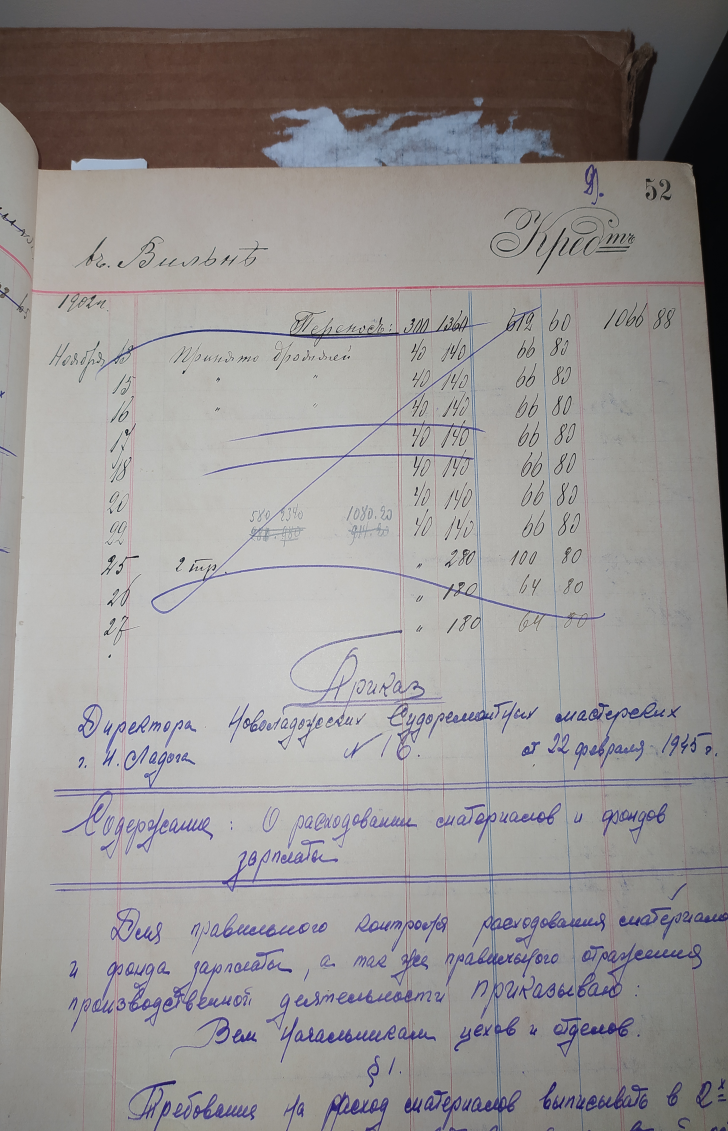 9). 52
въ Вильнѣ Кредитъ
1902 г.
Переносъ: 300 1360 612 60 1066 88
Ноября 13 Принято дрожжей 40 140 66 80
15 " " 40 140 66 80
16 " " 40 140 66 80
17 40 140 66 80
18 40 140 66 80
20 40 140 66 80
580 2340 1080.20
22 40 140 66 80
25 2 " 280 100 80
26 " 180 64 80
27 " 180 64 80
Приказ
Директора Новоладожских Судоремонтных мастерских
г. Н. Ладога № 16. от 22 февраля 1945 г.
Содержание: О расходовании материалов и фондов
зарплаты
Для правильного контроля расходования материало
и фонда зарплаты, а так же правильного отражения
производственной деятельности приказываю:
Всем Начальникам цехов и отделов.
§ 1.
Требование на расход материалов выписывать в 2х